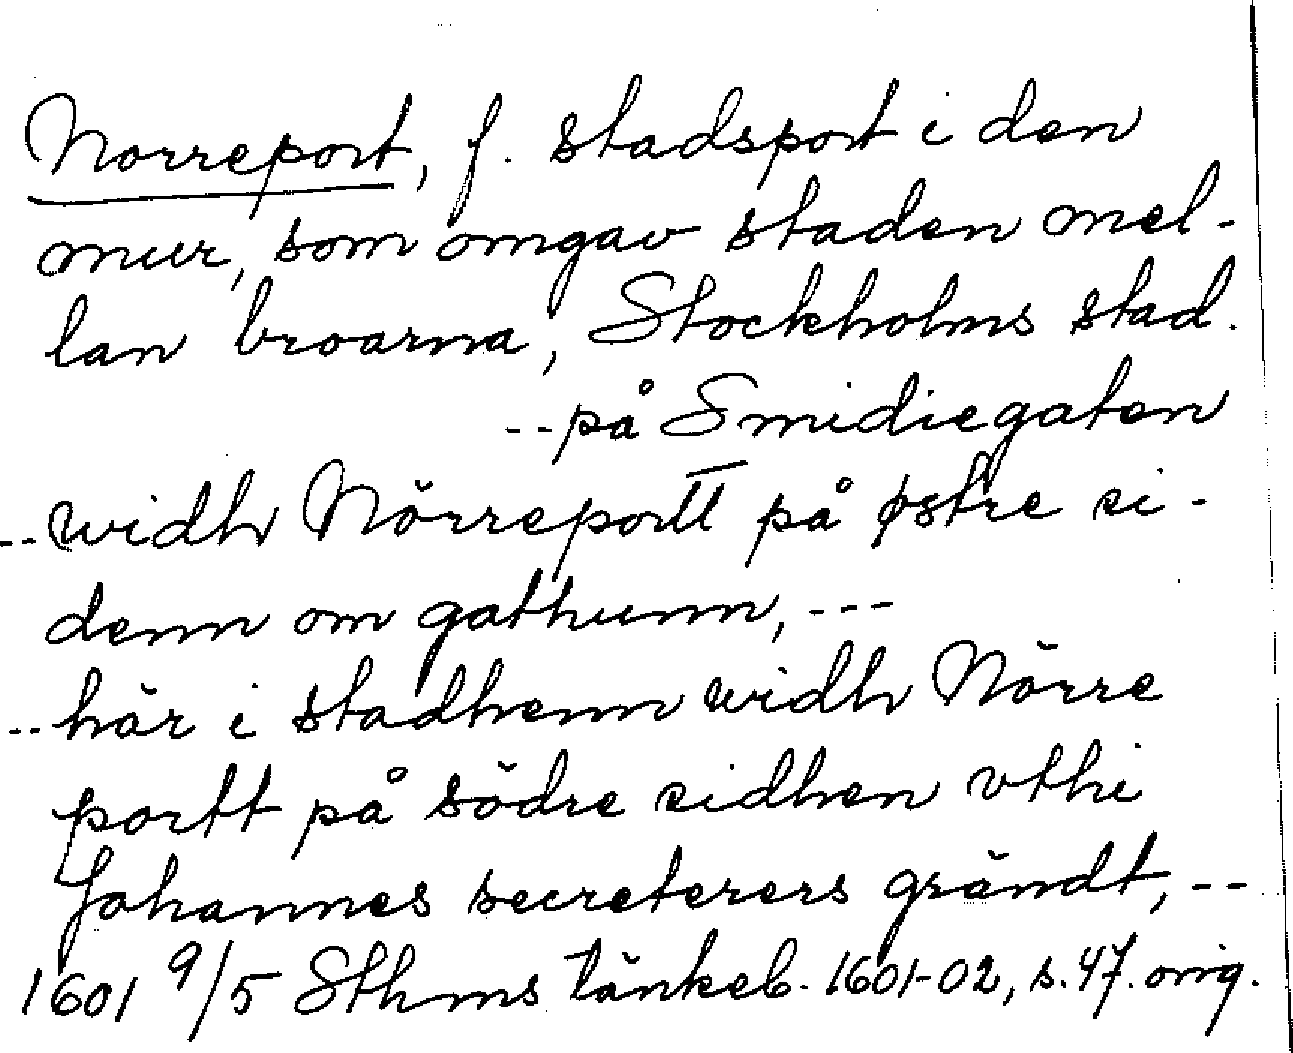 Norreport, f. stadsport i den
mur, som omgav staden mel-
lan broarna, Stockholms stad.
-- på Smidiegaten
-- widh Nörreportt på østre si-
denn om gathunn, ---
-- här i stadhenn widh Nörre
portt på södre sidhen vthi
Johannes secreterers grändt, --
1601 9/5 Sthms tänkeb. 1601-02, s. 47. orig.